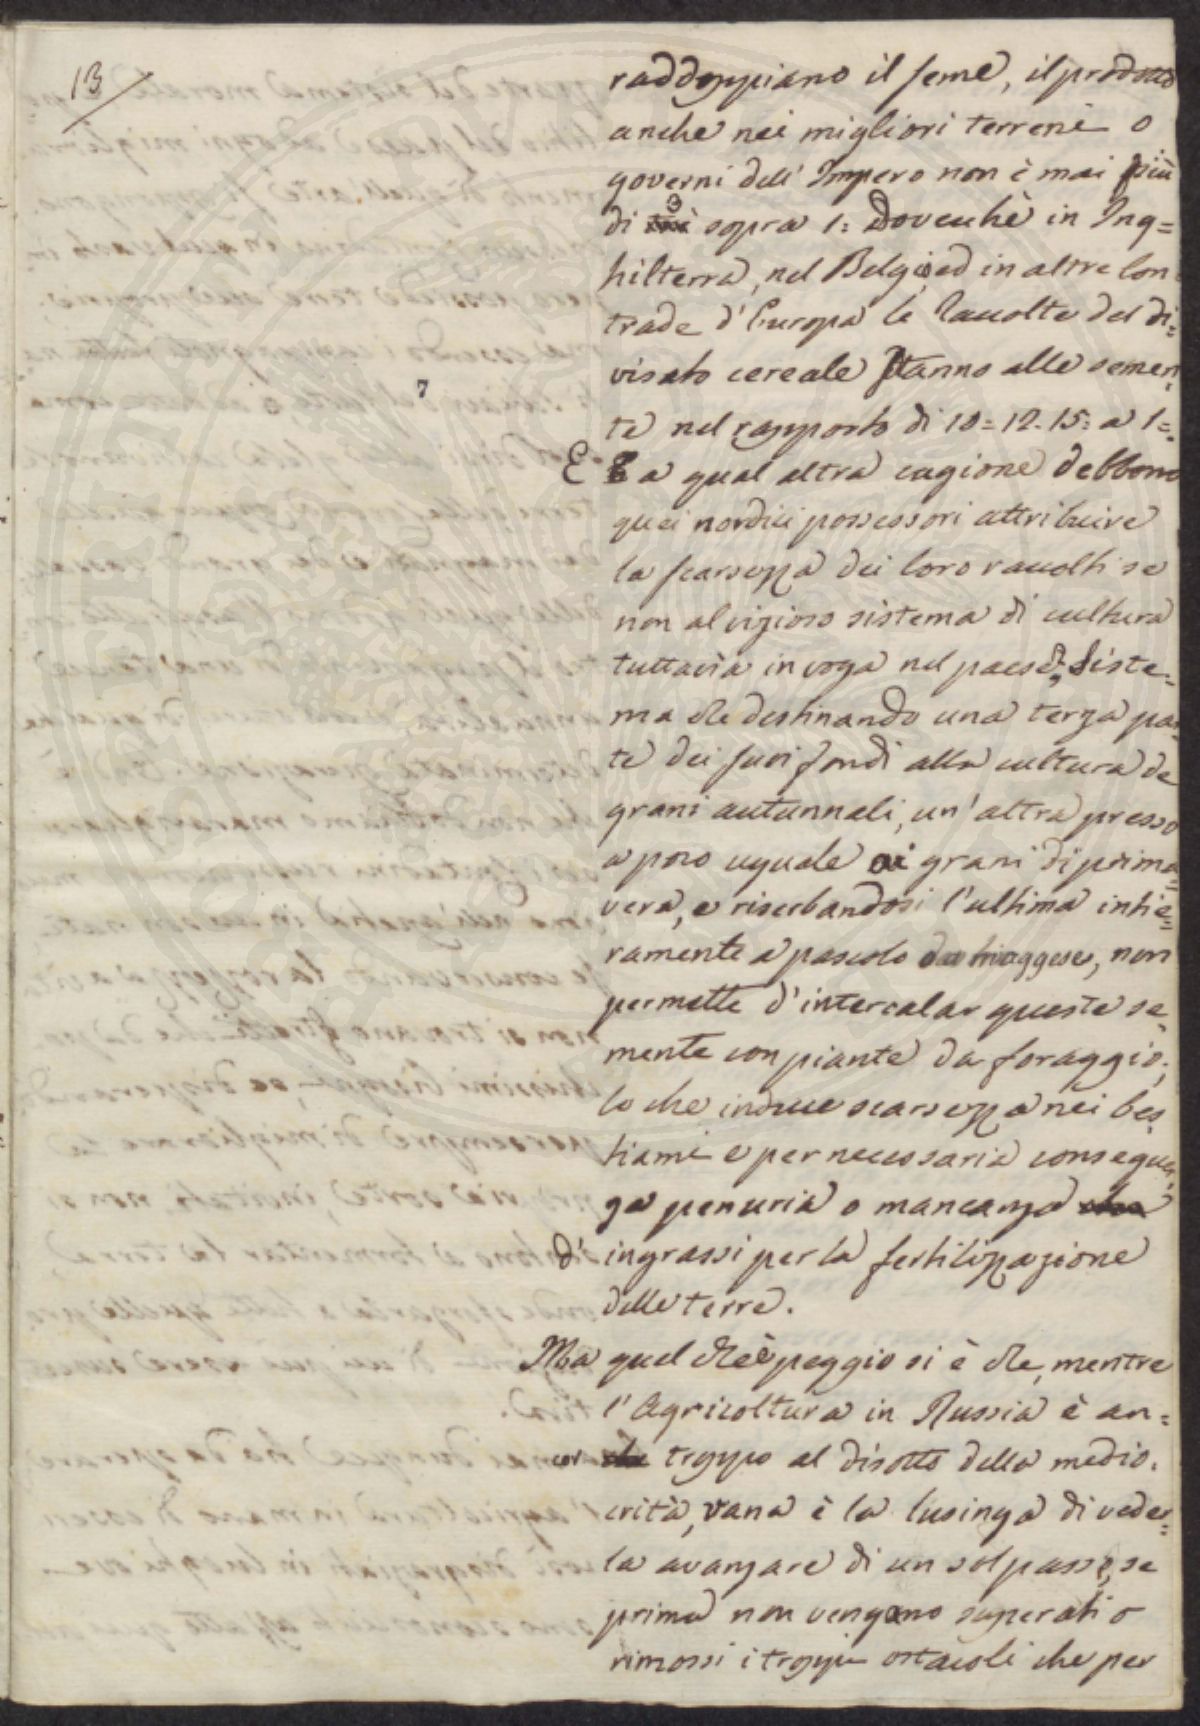 13
raddoppiano il seme, il prodotto
anche nei migliori terreni o
governi dell' Impero non è mai più
di 3 sopra 1: Dovecchè in Ing=
hilterra, nel Belgio, ed in altre Con
trade d'Europa le Raccolte del di=
visato cereale stanno alle semen
te nel rapporto di 10= 12. 15: a 1=.
E a qual altra cagione debbono
quei nordici possessori attribuire
la scarsezza dei loro raccolti se
non al vizioso sistema di cultura
tuttavia in voga nel paese; Siste=
ma che destinando una terza par
te dei suoi fondi alla cultura de
grani autunnali, un' altra presso
a poco uguale ai grani di prima=
vera, e riserbandosi l'ultima intie=
ramente a pascolo da maggese, non
permette d'intercalar queste se=
mente con piante da foraggio;
lo che induce scarsezza nei bes
tiami e per necessaria conseguen
za penuria o mancanza
d' ingrassi per la fertilizzazione
delle terre.
Ma quel che è peggio si è che, mentre
l'Agricoltura in Russia è an=
cor troppo al disotto della medio=
crità, vana è la lusinga di veder=
la avanzare di un sol passo, se
prima non vengano superati o
rimossi i troppi ostacoli che per